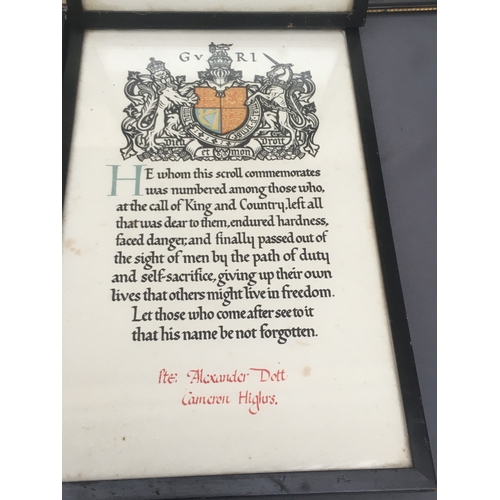 GV RI
Dieu et mon Droit
HE whom this scroll commemorates
was numbered among those who,
at the call of King and Country, left all
that was dear to them, endured hardness,
faced danger, and finally passed out of
the sight of men by the path of duty
and self-sacrifice, giving up their own
lives that others might live in freedom.
Let those who come after see to it
that his name be not forgotten.
Pte: Alexander Dott
Cameron Highrs.